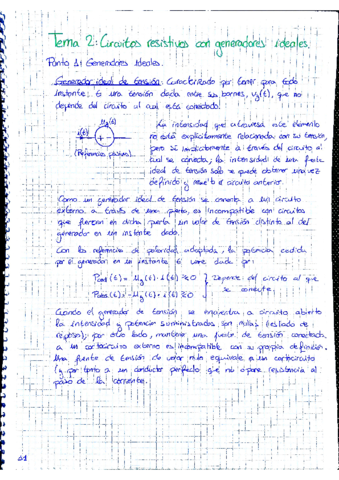 Tema 2: Circuitos resistivos con generadores ideales.
Punto 1: Generadores Ideales.
Generador ideal de tensión: Caracterizado por tener para todo
instante, t una tensión dada entre sus bornes, ug(t), que no
depende del circuito al cual está conectado.
ug(t)
i(t)
- +
(Referencias positivas)
La intensidad que atraviesa este elemento
no está explícitamente relacionada con su tensión,
pero sí implícitamente a través del circuito al
cual se conecta; la intensidad de una fuente
ideal de tensión sólo se puede obtener una vez
definido y resuelto el circuito anterior.
Como un generador ideal de tensión se conecta a un circuito
externo a través de una puerta, es incompatible con circuitos
que fuercen en dicha puerta un valor de tensión distinto al del
generador en un instante dado.
Con las referencias de polaridad adoptada, la potencia cedida
por el generador en un instante t viene dada por:
Pced (t) = ug(t) · i(t) ≷ 0
Pabs (t) = -ug(t) · i(t) ≷ 0
} Depende del circuito al que
se conecte.
Cuando el generador de tensión se encuentra a circuito abierto
la intensidad y potencia suministradas son nulas (estado de
reposo); por otro lado, mantener una fuente de tensión conectada
a un cortocircuito externo es incompatible con su propia definición.
Una fuente de tensión de valor nulo equivale a un cortocircuito
(y por tanto a un conductor perfecto que no opone resistencia al
paso de la corriente.